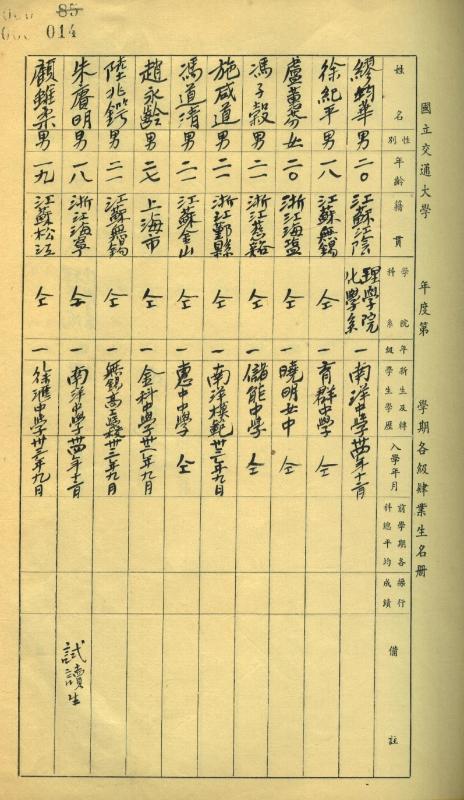 85
014
國立交通大學 年度第 學期各級肄業生名冊
姓名 性別 年齡 籍貫 學院科系 年級 新生及轉學生學歷 入學年月 前學期各科總平均 操行成績 備註
繆鈞華 男 二〇 江蘇江陰 理學院化學系 一 南洋中學 卅四年十二月
徐紀平 男 一八 江蘇無錫 仝 一 育群中學 仝
盧蕙芬 女 二〇 浙江海鹽 仝 一 曉明女中 仝
馮子穀 男 二一 浙江慈谿 仝 一 儲能中學 仝
施咸道 男 二一 浙江鄞縣 仝 一 南洋模範 卅三年九月
馮道清 男 二一 江蘇金山 仝 一 惠中中學 仝
趙永齡 男 二七 上海市 仝 一 金科中學 卅一年九月
陸兆鍔 男 二一 江蘇無錫 仝 一 無錫高工 卅三年九月
朱賡明 男 一八 浙江海寧 仝 一 南洋中學 卅四年十二月 試讀生
顧鍾柔 男 一九 江蘇松江 仝 一 徐滙中學 卅三年九月